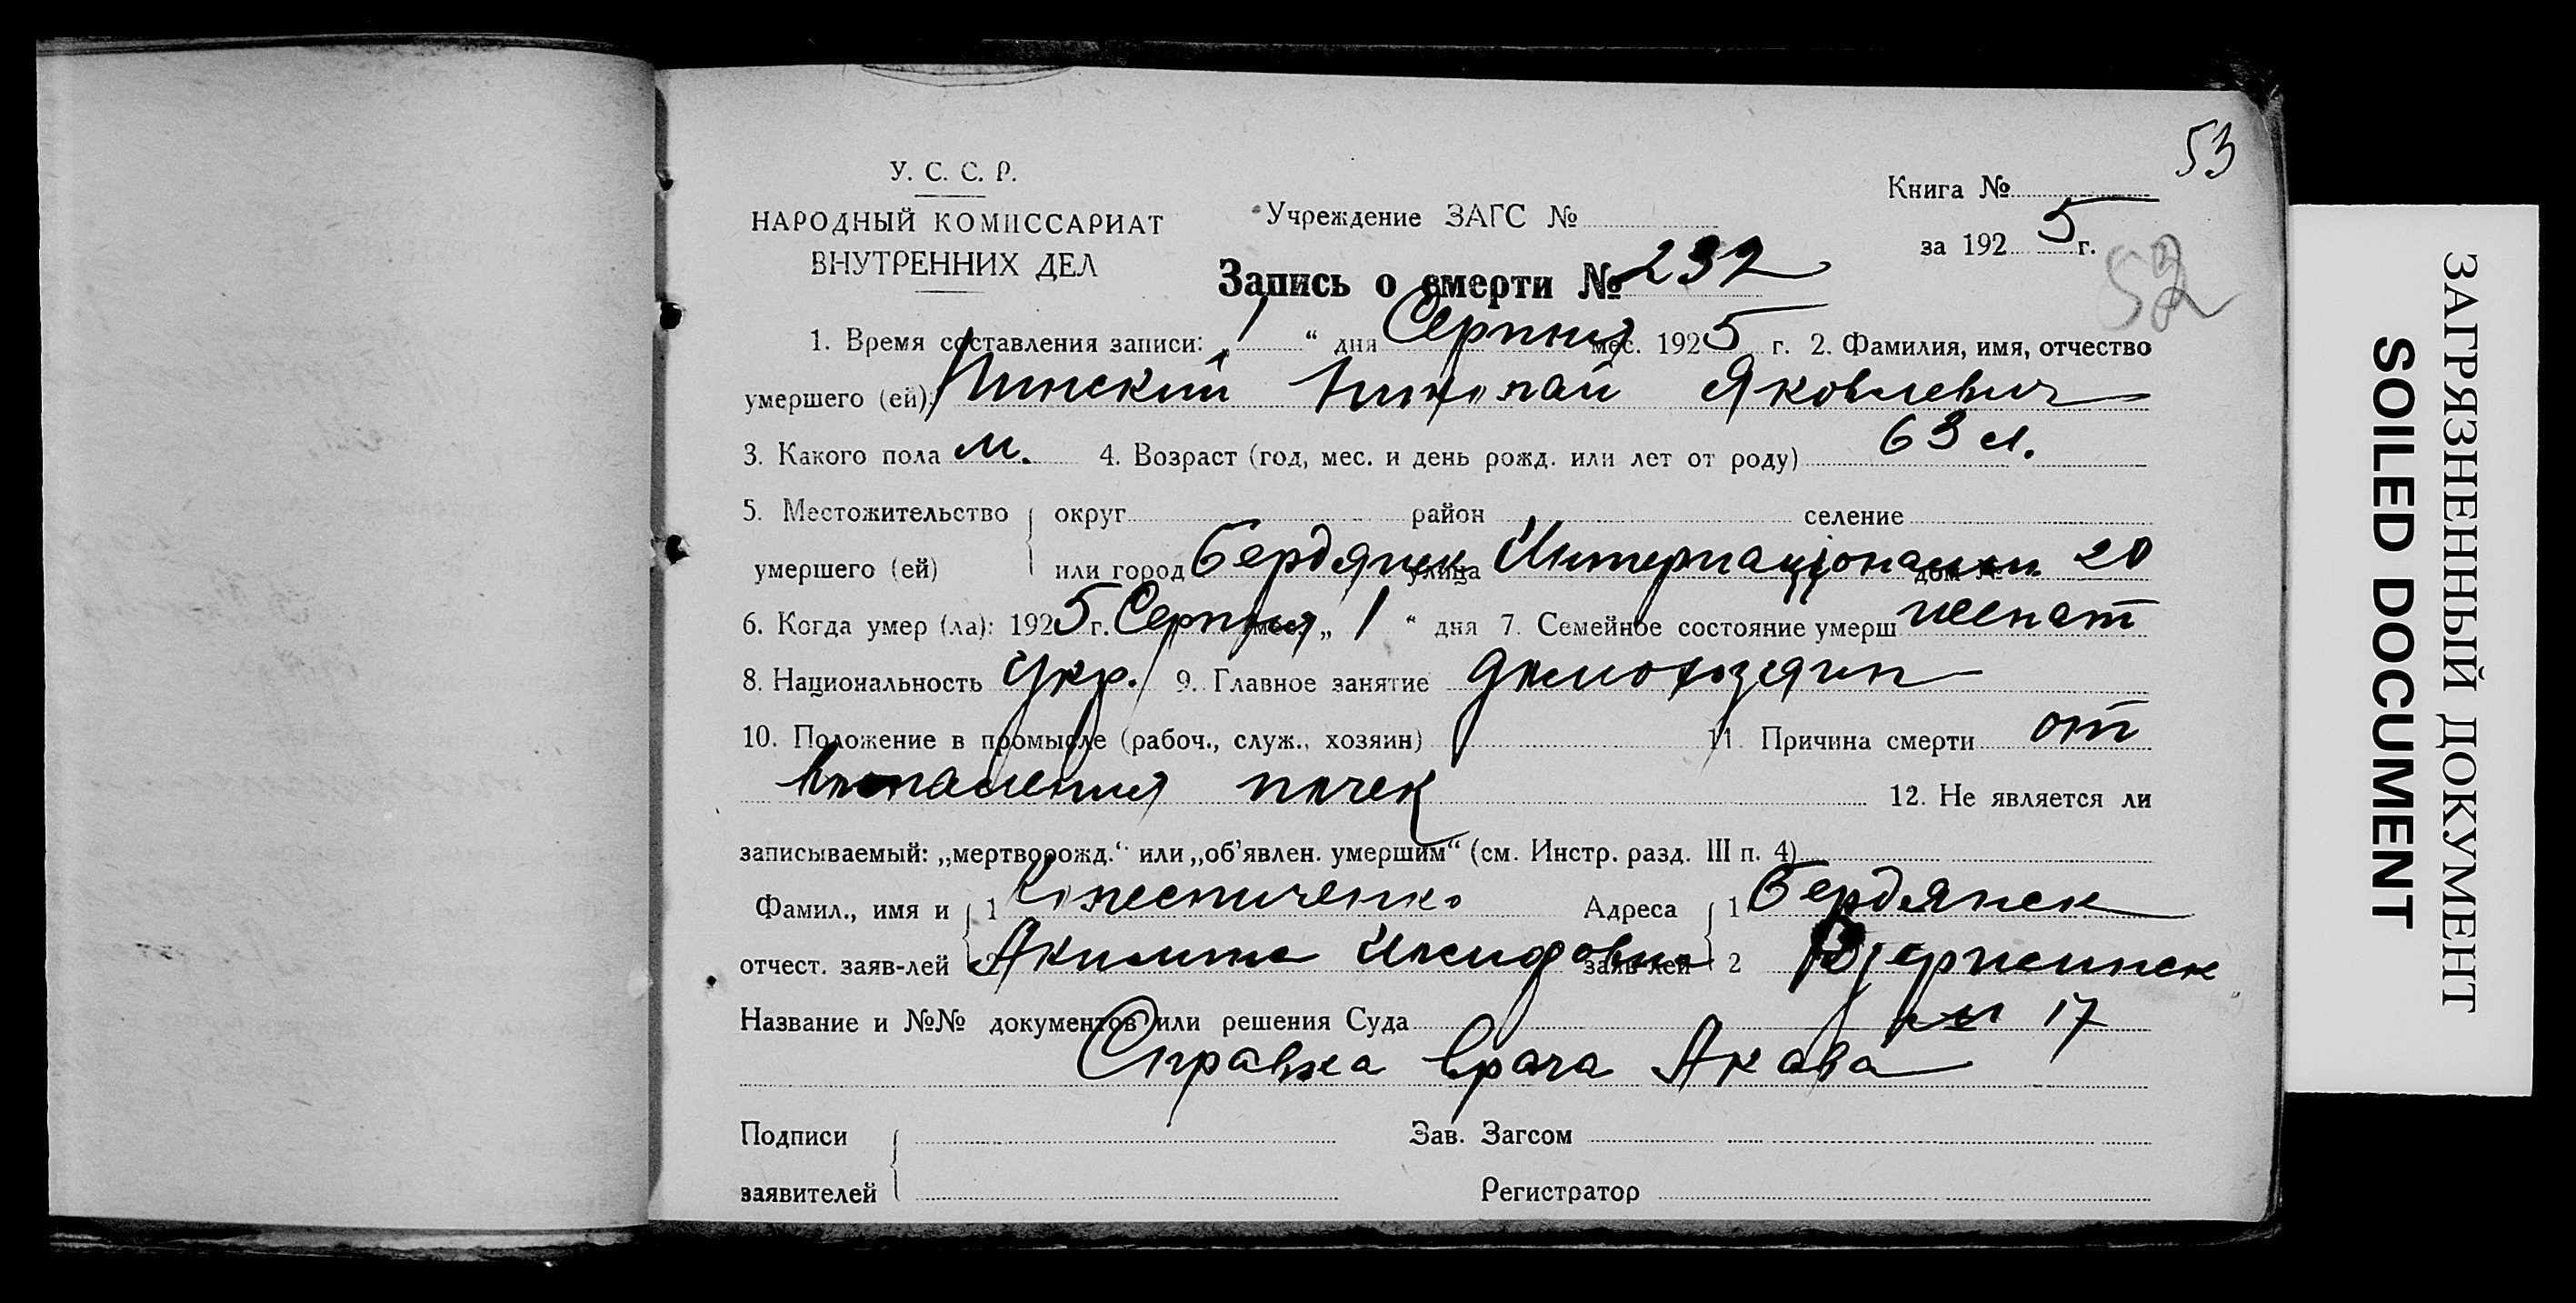 53
У. С. С. Р.
НАРОДНЫЙ КОМИССАРИАТ
ВНУТРЕННИХ ДЕЛ
Учреждение ЗАГС №
Книга №
за 1925 г.
52
Запись о смерти № 232
1. Время составления записи: „1“ дня Серпня мес. 1925 г. 2. Фамилия, имя, отчество
умершего (ей): Пинский Николай Яковлевич
3. Какого пола м. 4. Возраст (год, мес. и день рожд. или лет от роду) 63 л.
5. Местожительство округ район селение
умершего (ей) или город Бердянск улица Интернаціональн. дом № 20
6. Когда умер (ла): 1925 г. Серпня мес. „1“ дня 7. Семейное состояние умерш женат
8. Национальность Укр. 9. Главное занятие домохозяин
10. Положение в промысле (рабоч., служ., хозяин) 11. Причина смерти от
воспаления почек 12. Не является ли
записываемый: „мертворожд.“ или „об’явлен. умершим“ (см. Инстр. разд. III п. 4)
Фамил., имя и 1 Адреса 1 Бердянск
отчест. заяв-лей 2 Акилина заяв-лей 2
17
Название и №№ документов или решения Суда
Справка врача Акава
Подписи Зав. Загсом
заявителей Регистратор
ЗАГРЯЗНЕННЫЙ ДОКУМЕНТ
SOILED DOCUMENT